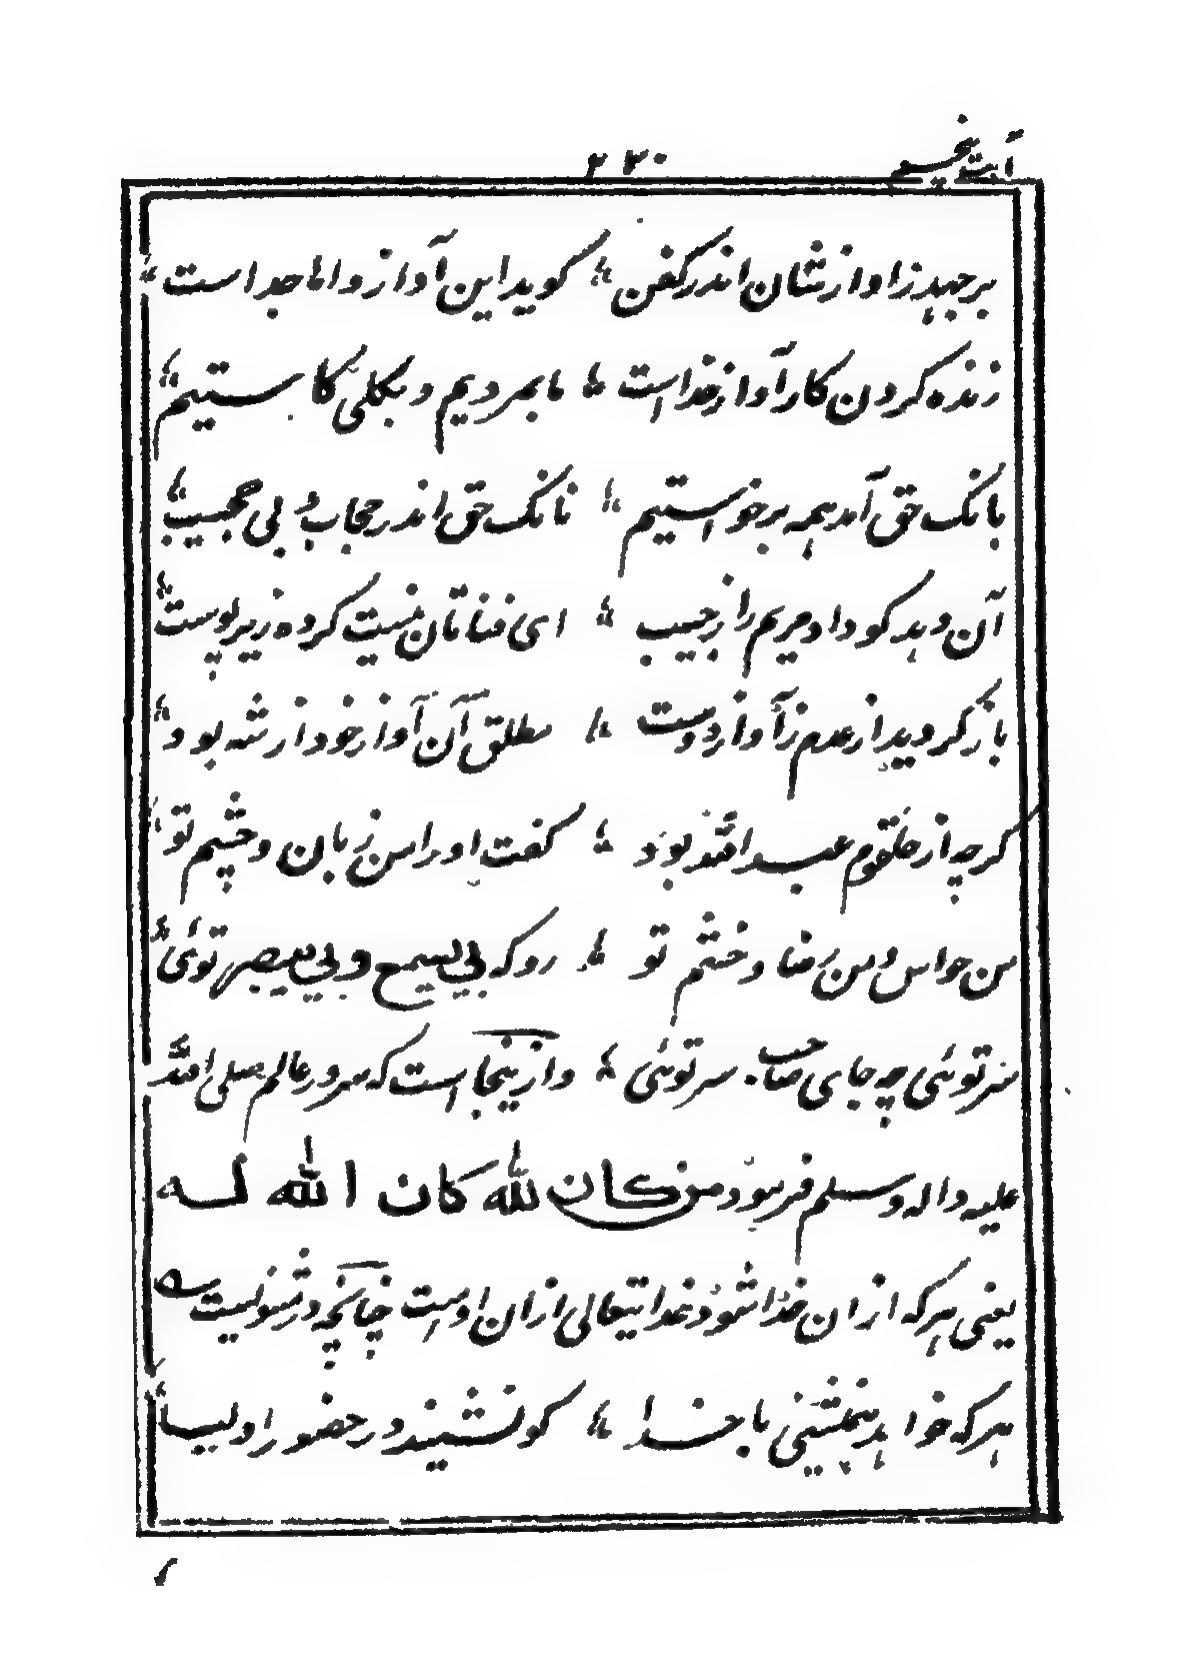 آیت پنجم ۲۳۰
برجهد زاوازشان اندر کفن ؛ گوید این آواز دانا ماجداست ؛
زنده کردن کار آواز خداست ؛ ما بمردیم و بکلی کاستیم ؛
بانک حق آمد همه برخواستیم ؛ نانک حق اندر حجاب و بی حجیب ؛
آن دهد کو داد مریم را ز جیب ؛ ای فناتان نیست کرده زیر پوست ؛
باز گردید از عدم ز آواز دوست ؛ مطلق آن آواز خود از شه بود ؛
گرچه از حلقوم عبد الله بود ؛ گفت او را من زبان و چشم تو ؛
من حواس و من رضا و خشم تو ؛ رو که بی یسمع و بی یبصر توئی ؛
سر توئی چه جای صاحب سر توئی ؛ و از ینجا است که سرور عالم صلی الله
علیه واله وسلم فرمود من کان لله کان الله له
یعنی هرکه از ان خدا شود خدا یتعالی از ان اوست چنانچه در مثنویست
هرکه خواهد همنشینی با خدا ؛ گو نشیند در حضور اولیا ؛